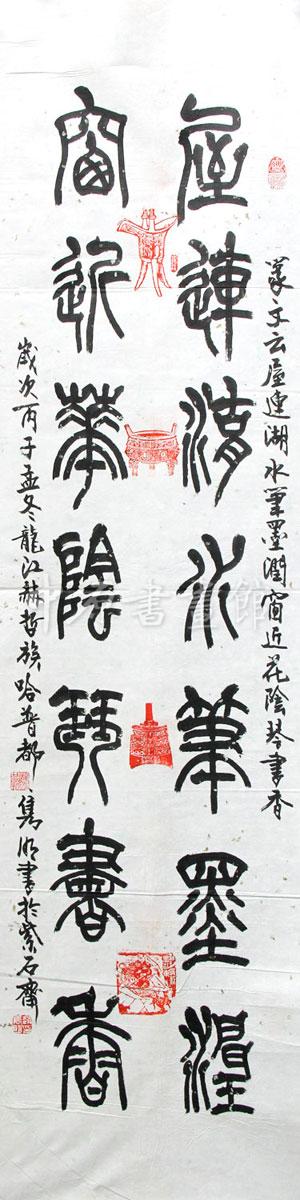 篆文云屋連湖水筆墨潤窗近花陰琴書香
屋連湖水筆墨潤
窗近華陰琴書香
歲次丙子孟冬龍江赫哲族哈普都雋明書於紫石齋
書畫館